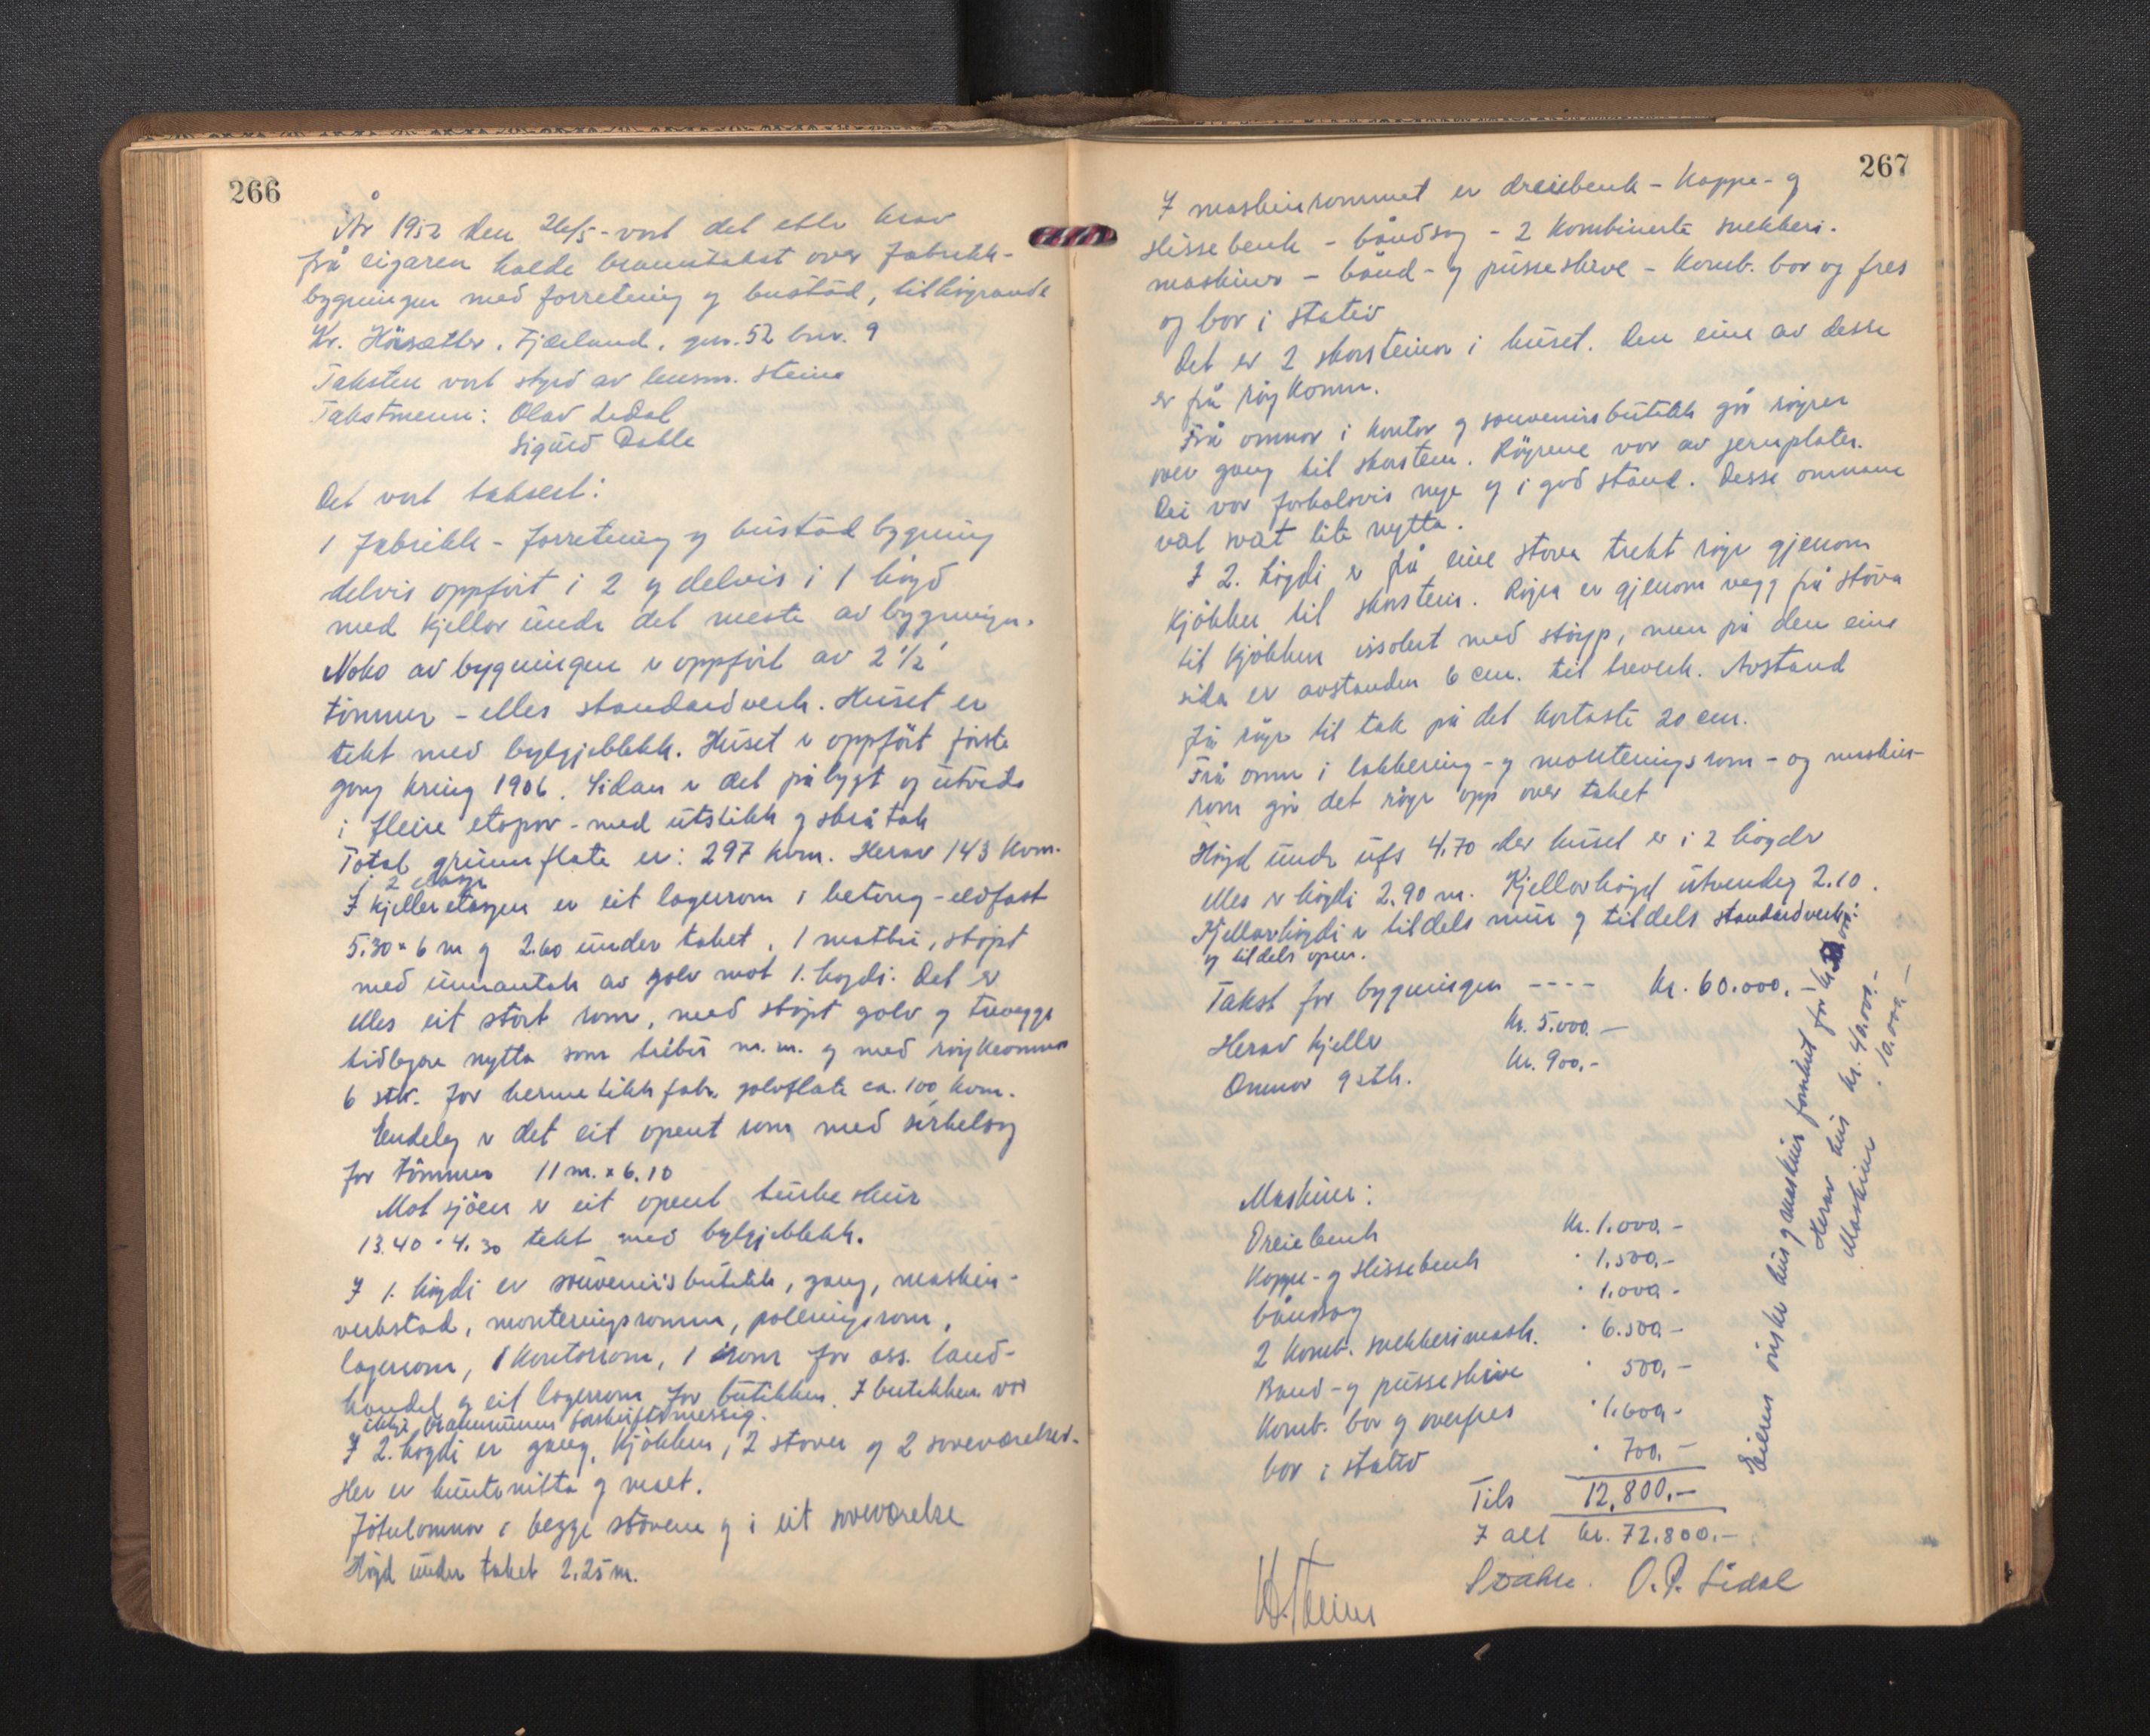 266
År 1952 den 26/5 - vart det etter krav
frå eigaren halde branntakst over fabrikk-
bygningen med forretning og bustad, tilhøyrande
Kr. Husætter, Fjærland, gnr. 52 bnr. 9
Taksten vart styrd av lensm. Steine
Takstmenn: Olav Lidal
Sigurd Dahle
Det vart taksert:
1 Fabrikk - forretning og bustad bygning
delvis oppført i 2 og delvis i 1 høgd
med kjellar under det meste av bygningen.
Noko av bygningen er oppført av 2 1/2"
tømmer - elles standardverk. Huset er
tekt med bylgjeblekk. Huset er oppført første
gong kring 1906. Sidan er det påbygt og utvida
i fleire etapar - med utstikk og skråtak
Total grunnflate er: 297 kvm. Herav 143 kvm.
i 2 etasje
I kjelleretasjen er eit lagerrom i betong - eldfast
5.30 x 6 m og 2.60 under taket, 1 matbu, støpt
med unnantak av golv mot 1. høgdi. Det er
elles eit stort rom, med støpt golv og trevegger
tidlegare nytta som bibu m.m. og med røykeomnar
6 stk. for hermetikkfabr. golvflate ca. 100 kvm.
Endeleg er det eit opent rom med sirkelsag
for tømmer 11 m. x 6.10
Mot sjøen er eit opent turkeskur
13.40 x 4.30 tekt med bylgjeblekk.
I 1. høgdi er souvenirsbutikk, gang, maskin-
verkstad, monteringsromm, poleringsrom,
lagerrom, 1 kontorrom, 1 rom for ass. land-
handel og eit lagerrom for butikken. I butikken var
ikkje brannmuren forskriftsmessig.
I 2. høgdi er gang, kjøkken, 2 stover og 2 soveværelser.
Her er huntonitta og malt.
Jøtulomnar i begge stovene og i eit soveværelse
Høgd under taket 2.25 m.
267
I maskinrommet er dreiebenk - kappe- og
slissebenk - båndsag - 2 kombinerte snekkeri-
maskiner - bånd- og pusseskive - komb. bor og fres
og bor i stativ
Det er 2 skorsteinar i huset. Den eine av desse
er frå røykomn.
Frå omnar i kontor og souvenirsbutikk går røyrer
over gang til skorstein. Røyrene var av jernplater.
Dei var forholdsvis nye og i god stand. Desse omnane
vart svært lite nytta.
I 2. høgdi er frå eine stova trekt røyr gjenom
kjøkken til skorstein. Røyra er gjenom vegg frå stova
til kjøkken issolert med støyp, men på den eine
sida er avstanden 6 cm. til treverk. Avstand
frå røyr til tak på det kortaste 20 cm.
Frå omn i lakkering- og monteringsrom - og maskin-
rom går det røyr opp over taket
Høgd under ufs 4.70 der huset er i 2 høgder
elles er høgdi 2.90 m. Kjellarhøgd utvendig 2.10.
Kjellarhøgdi er tildels mur og tildels standardverk
og tildels open.
Takst for bygningen ---- Kr. 60.000.-
Herav kjeller Kr. 5.000.-
Omnar 9 stk. Kr. 900.-
Maskiner:
Dreiebenk Kr. 1.000.-
Kappe- og slissebenk " 1.500.-
båndsag " 1.000.-
2 komb. snekkerimask. " 6.500.-
Band- og pusseskive " 500.-
Komb. bor og overfres " 1.600.-
bor i stativ " 700.-
Tils 12.800.-
I alt kr. 72.800.-
S Dahle. O. P. Lidal
H. Steine
Eieren ønsker hus og maskiner forsikret for kr.
Herav hus kr. 40.000.-
Maskiner " 10.000.-